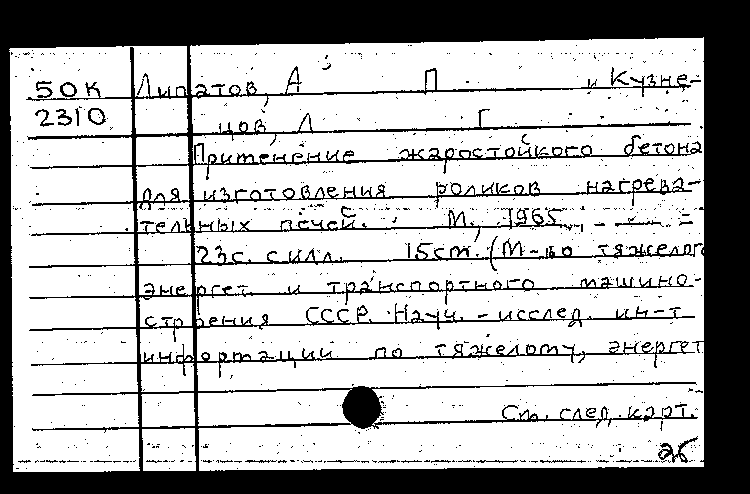 50К Липатов, А П и Кузне-
2310 цов, Л Г
Применение жаростойкого бетона
для изготовления роликов нагрева-
тельных печей. М., 1965.
23с. с илл. 15см. (М-во тяжелого
энергет. и транспортного машино-
строения СССР. Науч.-исслед. ин-т
информации по тяжелому, энергет
См. след. карт.